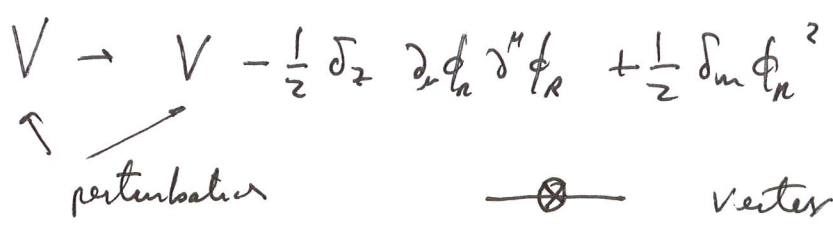 V → V - 1/2 δ_z ∂_μ ϕ_R ∂^μ ϕ_R + 1/2 δ_m ϕ_R^2
perturbation
vertex